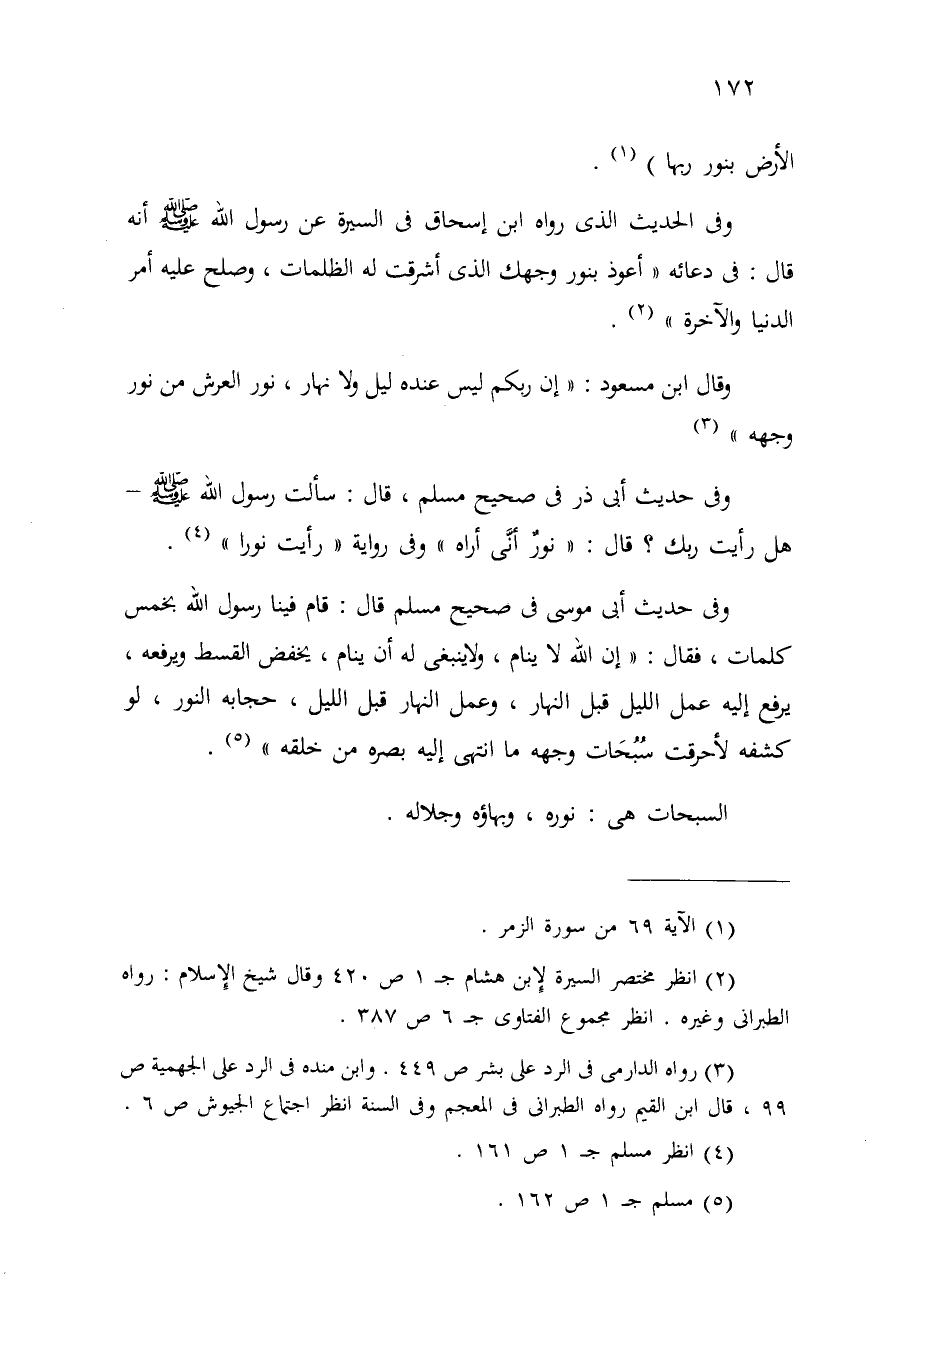 ١٧٢
الأرض بنور ربها ) (١) .
وفى الحديث الذى رواه ابن إسحاق فى السيرة عن رسول الله ﷺ أنه
قال : فى دعائه « أعوذ بنور وجهك الذى أشرقت له الظلمات ، وصلح عليه أمر
الدنيا والآخرة » (٢) .
وقال ابن مسعود : « إن ربكم ليس عنده ليل ولا نهار ، نور العرش من نور
وجهه » (٣)
وفى حديث أبى ذر فى صحيح مسلم ، قال : سألت رسول الله ﷺ –
هل رأيت ربك ؟ قال : « نورٌ أنَّى أراه » وفى رواية « رأيت نورا » (٤) .
وفى حديث أبى موسى فى صحيح مسلم قال : قام فينا رسول الله بخمس
كلمات ، فقال : « إن الله لا ينام ، ولاينبغى له أن ينام ، يخفض القسط ويرفعه ،
يرفع إليه عمل الليل قبل النهار ، وعمل النهار قبل الليل ، حجابه النور ، لو
كشفه لأحرقت سُبُحَات وجهه ما انتهى إليه بصره من خلقه » (٥) .
السبحات هى : نوره ، وبهاؤه وجلاله .
(١) الآية ٦٩ من سورة الزمر .
(٢) انظر مختصر السيرة لإبن هشام جـ ١ ص ٤٢٠ وقال شيخ الإسلام : رواه
الطبرانى وغيره . انظر مجموع الفتاوى جـ ٦ ص ٣٨٧ .
(٣) رواه الدارمى فى الرد على بشر ص ٤٤٩ . وابن منده فى الرد على الجهمية ص
٩٩ ، قال ابن القيم رواه الطبرانى فى المعجم وفى السنة انظر اجتماع الجيوش ص ٦ .
(٤) انظر مسلم جـ ١ ص ١٦١ .
(٥) مسلم جـ ١ ص ١٦٢ .